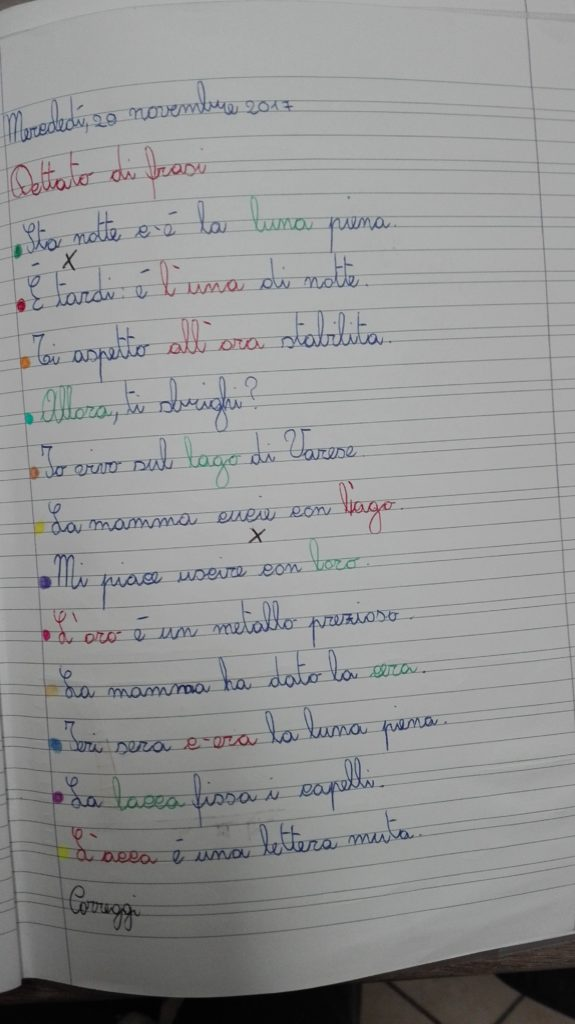 Mercoledì, 29 novembre 2017
Dettato di frasi
Sta notte c'è la luna piena.
È tardi: è l'una di notte.
Ti aspetto all'ora stabilita.
Allora, ti sbrighi?
Io vivo sul lago di Varese.
La mamma cucie con l'ago.
Mi piace uscire con loro.
L'oro è un metallo prezioso.
La mamma ha dato la cera.
Ieri sera c'era la luna piena.
La lacca fissa i capelli.
L'acca è una lettera muta.
Correggi